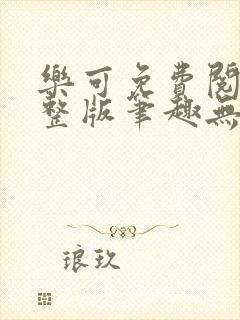 樂可免費閱
整版筆趣無
琅玖